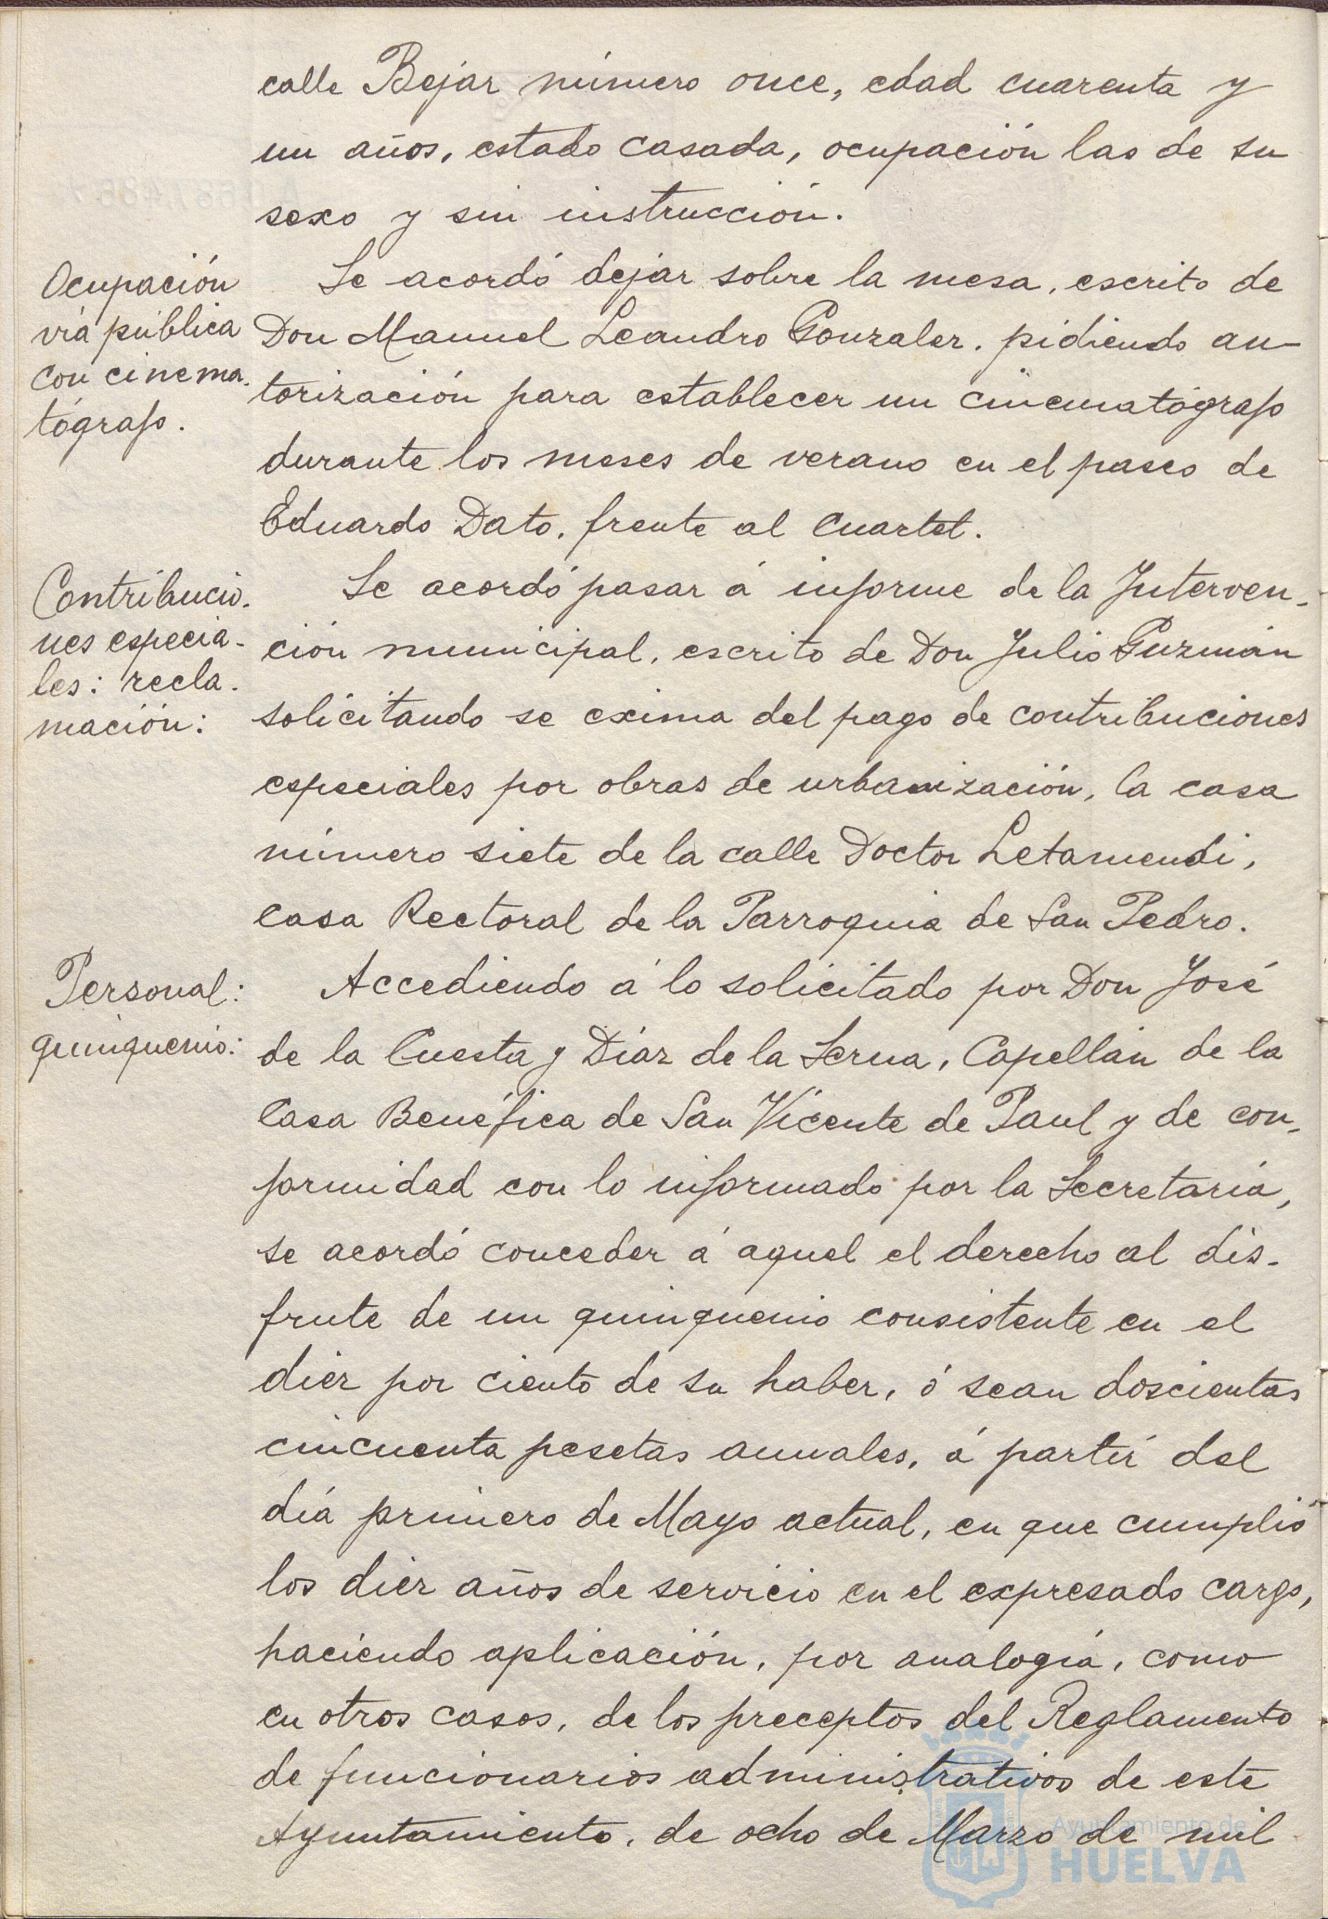 calle Bejar número once, edad cuarenta y
un años, estado casada, ocupación las de su
sexo y sin instrucción.
Ocupación
vía pública
con cinema-
tógrafo.
Se acordó dejar sobre la mesa, escrito de
Don Manuel Leandro Gonzalez, pidiendo au-
torización para establecer un cinematógrafo
durante los meses de verano en el paseo de
Eduardo Dato, frente al Cuartel.
Contribucio-
nes especia-
les: recla-
mación:
Se acordó pasar á informe de la Interven-
ción municipal, escrito de Don Julio Guzmán
solicitando se exima del pago de contribuciones
especiales por obras de urbanización, la casa
número siete de la calle Doctor Letamendi,
casa Rectoral de la Parroquia de San Pedro.
Personal:
quinquenio:
Accediendo á lo solicitado por Don José
de la Cuesta y Díaz de la Serna, Capellán de la
Casa Benéfica de San Vicente de Paul y de con-
formidad con lo informado por la Secretaría,
se acordó conceder á aquel el derecho al dis-
frute de un quinquenio consistente en el
diez por ciento de su haber, ó sean doscientas
cincuenta pesetas anuales, á partir del
día primero de Mayo actual, en que cumplió
los diez años de servicio en el expresado cargo,
haciendo aplicación, por analogía, como
en otros casos, de los preceptos del Reglamento
de funcionarios administrativos de este
Ayuntamiento, de ocho de Marzo de mil
Ayuntamiento de
HUELVA